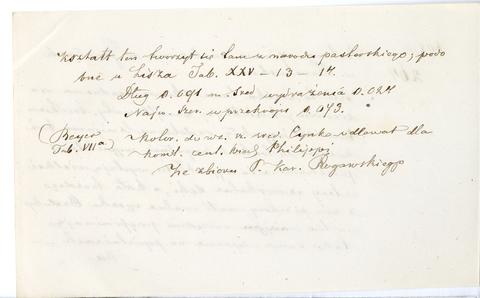 Kształt ten tworzył się sam z narodu pasterskiego; podo
bne u Lisza Tab. XXV – 13 – 14.
Dług 0.091 m. Śred wydrążenia 0.024
Najw. szer. w przekroju 0.073.
(Beyer Tab. VIIa)
kolor. do wz. n. wed. Cynk odlewał dla
komit. cent. Wied Philippi
Ze zbioru P. Kar. Rogawskiego